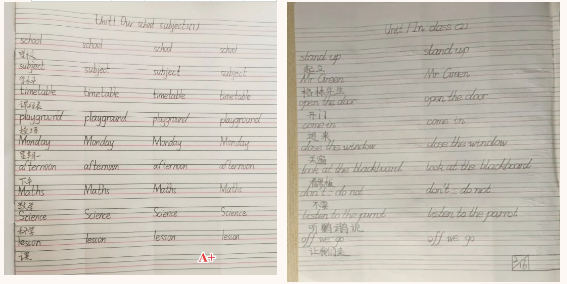 Unit1 Our school subjects(1)
school school school school
学校
subject subject subject subject
学科
timetable timetable timetable timetable
课程表
playground playground playground playground
操场
Monday Monday Monday Monday
星期一
afternoon afternoon afternoon afternoon
下午
Maths Maths Maths Maths
数学
Science Science Science Science
科学
lesson lesson lesson lesson
课
A+
Unit 1 In class (2)
stand up stand up
起立
Mr Green Mr Green
格林先生
open the door open the door
开门
come in come in
进来
close the window close the window
关窗
look at the blackboard look at the blackboard
看黑板
don't = do not don't = do not
不要
listen to the parrot listen to the parrot
听鹦鹉说
off we go off we go
让我们走